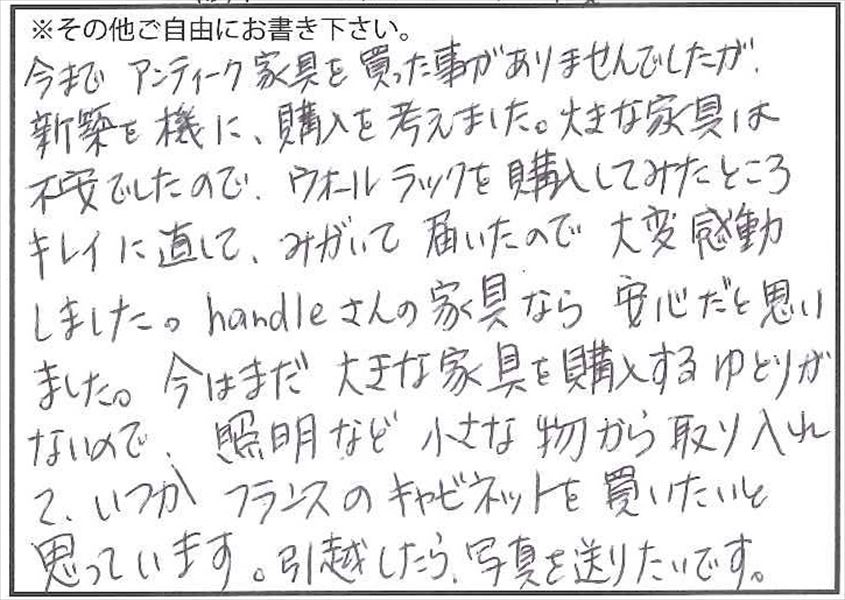 ※その他ご自由にお書き下さい。
今まで アンティーク家具を買った事がありませんでしたが、
新築を機に、購入を考えました。大きな家具は
不安でしたので、ウォールラックを購入してみたところ
キレイに直して、みがいて届いたので大変感動
しました。handleさんの家具なら 安心だと思い
ました。今はまだ 大きな家具を購入するゆとりが
ないので、照明など 小さな物から取り入れ
て、いつか フランスのキャビネットを買いたいと
思っています。引越したら、写真を送りたいです。